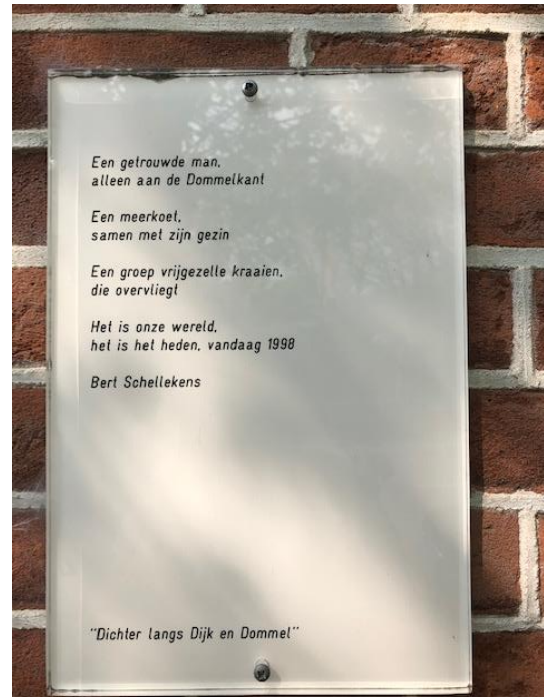 Een getrouwde man,
alleen aan de Dommelkant
Een meerkoet,
samen met zijn gezin
Een groep vrijgezelle kraaien,
die overvliegt
Het is onze wereld,
het is het heden, vandaag 1998
Bert Schellekens
"Dichter langs Dijk en Dommel"